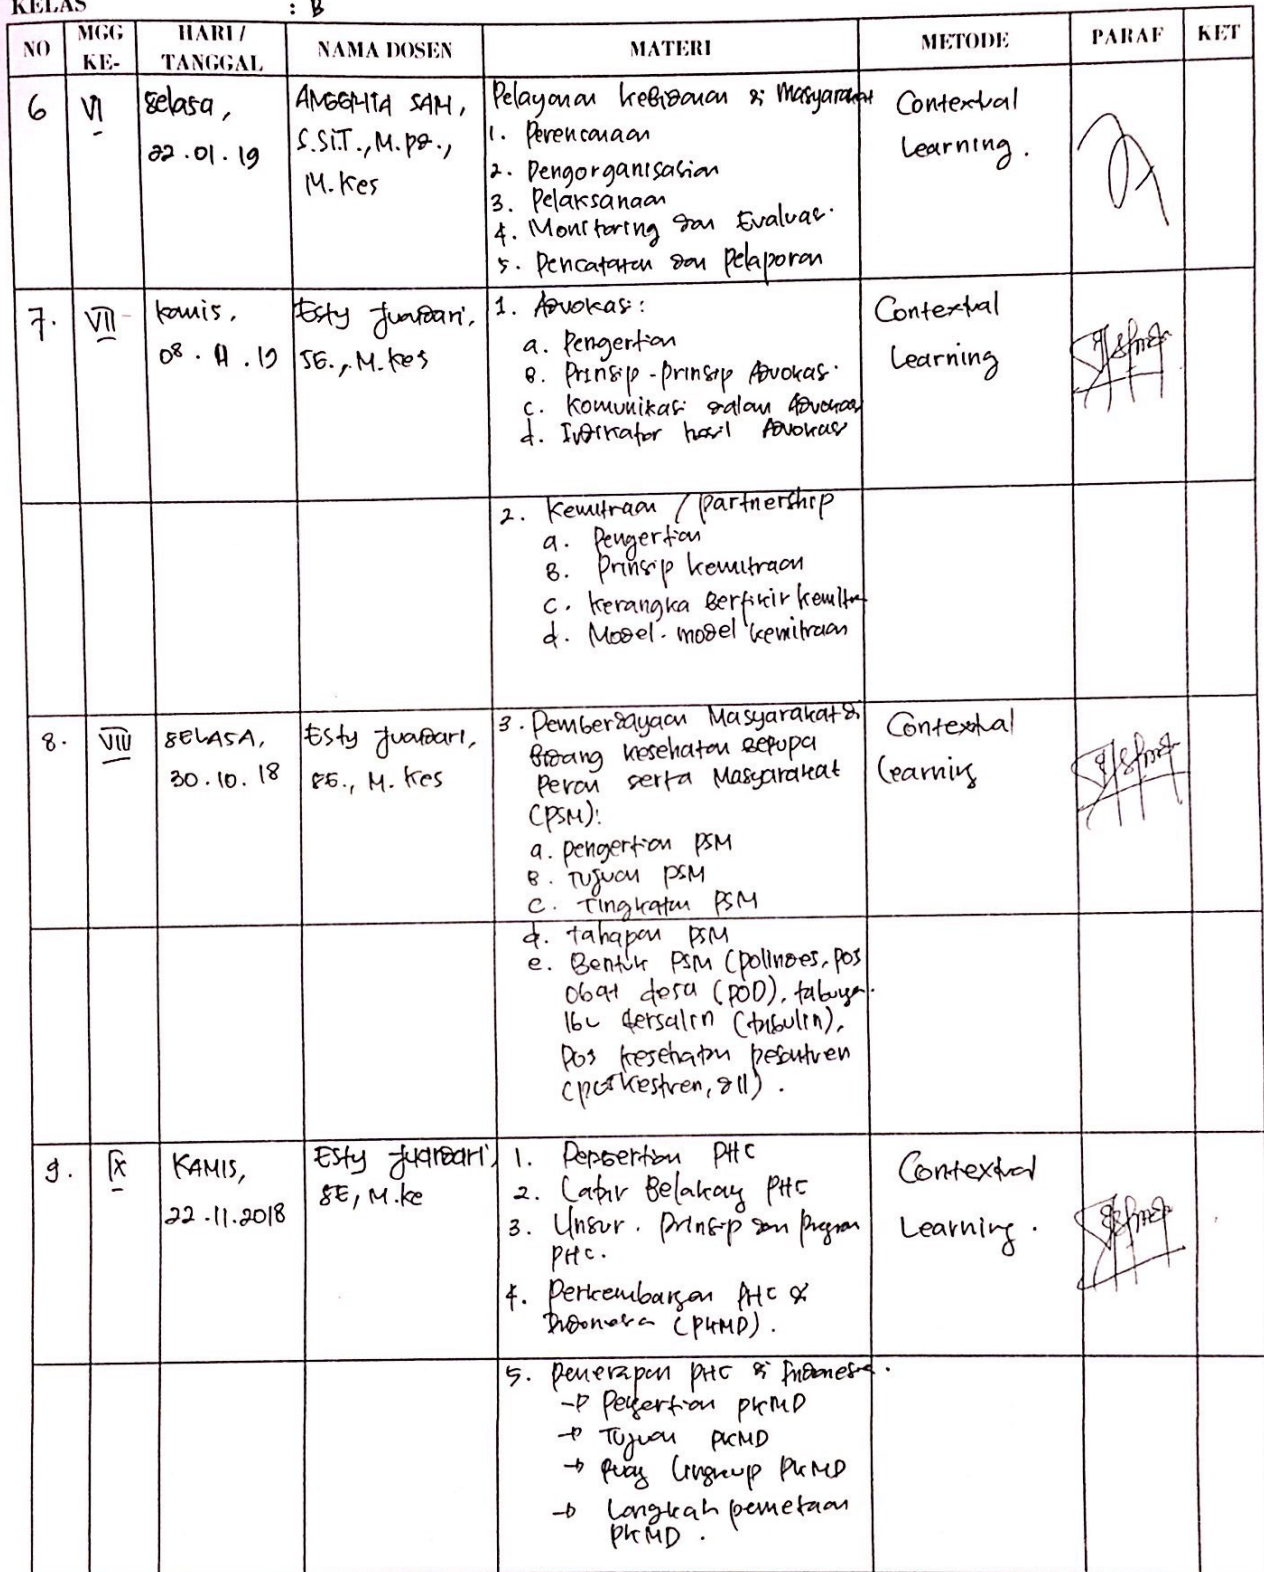 KELAS : B
NO MGG KE- HARI / TANGGAL NAMA DOSEN MATERI METODE PARAF KET
6 VI Selasa, 22.01.19
ANGGHITA SAM, S.SiT., M.pd., M.Kes
Pelayanan kebidanan di Masyarakat
1. Perencanaan
2. Pengorganisasian
3. Pelaksanaan
4. Monitoring dan Evaluasi
5. Pencatatan dan Pelaporan
Contextual
Learning.
7. VII Kamis,
08. 11 .19
Esty Juandari,
SE., M.Kes
1. Advokasi:
a. Pengertian
B. Prinsip-prinsip Advokasi
c. Komunikasi dalam Advokasi
d. Indikator hasil Advokasi
Contextual
Learning
2. Kemitraan / partnership
a. Pengertian
B. Prinsip kemitraan
c. Kerangka Berfikir kemitra
d. Model-model kemitraan
8. VIII SELASA,
30.10.18
Esty Juandari,
SE., M.Kes
3. Pemberdayaan Masyarakat di
Bidang kesehatan Berupa
Peran serta Masyarakat
(PSM):
a. pengertian PSM
B. Tujuan PSM
c. Tingkatan PSM
Contextual
Learning
d. tahapan PSM
e. Bentuk PSM (polindes, pos
obat desa (POD), tabungan
ibu bersalin (tabulin),
Pos kesehatan pesantren
(poskestren, dll).
9. IX KAMIS,
22.11.2018
Esty Juandari,
SE, M.ke
1. Pengertian PHC
2. Latar Belakang PHC
3. Unsur. Prinsip dan Program
PHC.
4. Perkembangan PHC di
Indonesia (PKMD).
Contextual
Learning.
5. Penerapan PHC di Indonesia.
→ Pengertian PKMD
→ Tujuan PKMD
→ Ruang Lingkup PKMD
→ Langkah pemetaan
PKMD.